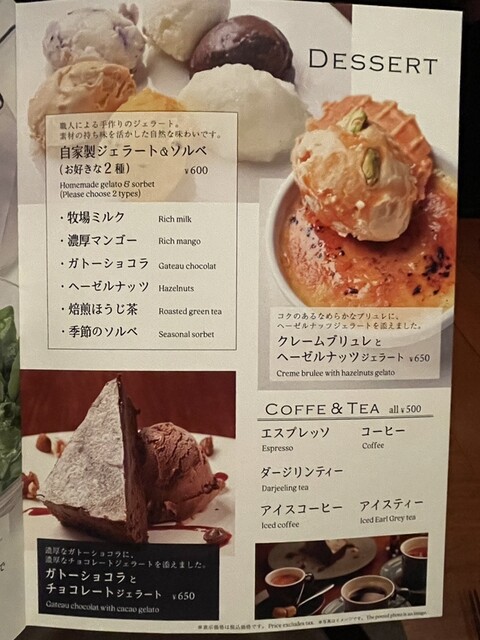 DESSERT
職人による手作りのジェラート。
素材の持ち味を活かした自然な味わいです。
自家製ジェラート&ソルベ
(お好きな2種) ¥600
Homemade gelato & sorbet
(Please choose 2 types)
・牧場ミルク Rich milk
・濃厚マンゴー Rich mango
・ガトーショコラ Gateau chocolat
・ヘーゼルナッツ Hazelnuts
・焙煎ほうじ茶 Roasted green tea
・季節のソルベ Seasonal sorbet
コクのあるなめらかなブリュレに、
ヘーゼルナッツジェラートを添えました。
クレームブリュレと
ヘーゼルナッツジェラート ¥650
Creme brulee with hazelnuts gelato
COFFE & TEA all ¥500
エスプレッソ コーヒー
Espresso Coffee
ダージリンティー
Darjeeling tea
アイスコーヒー アイスティー
Iced coffee Iced Earl Grey tea
濃厚なガトーショコラに、
濃厚なチョコレートジェラートを添えました。
ガトーショコラと
チョコレートジェラート ¥650
Gateau chocolat with cacao gelato
※表示価格は税込価格です。 Price excludes tax. ※写真はイメージです。 The posted photo is an image.